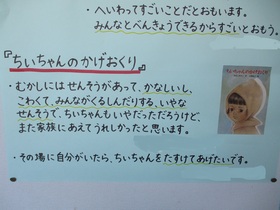 ・へいわってすごいことだとおもいます。
みんなとべんきょうできるからすごいとおもう。
『ちいちゃんのかげおくり』
・むかしにはせんそうがあって、かなしいし、
こわくて、みんながくるしんだりする、いやな
せんそうで、ちいちゃんもいやだっただろうけど、
また家族にあえてうれしかったと思います。
・その場に自分がいたら、ちいちゃんをたすけてあげたいです。
ちいちゃんのかげおくり